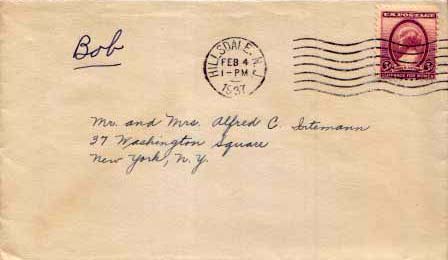 Bob
HILLSDALE, N.J.
FEB 4
1-PM
1937
U.S. POSTAGE
3¢
SUFFRAGE FOR WOMEN
Mr. and Mrs. Alfred C.
37 Washington Square
New York, N.Y.